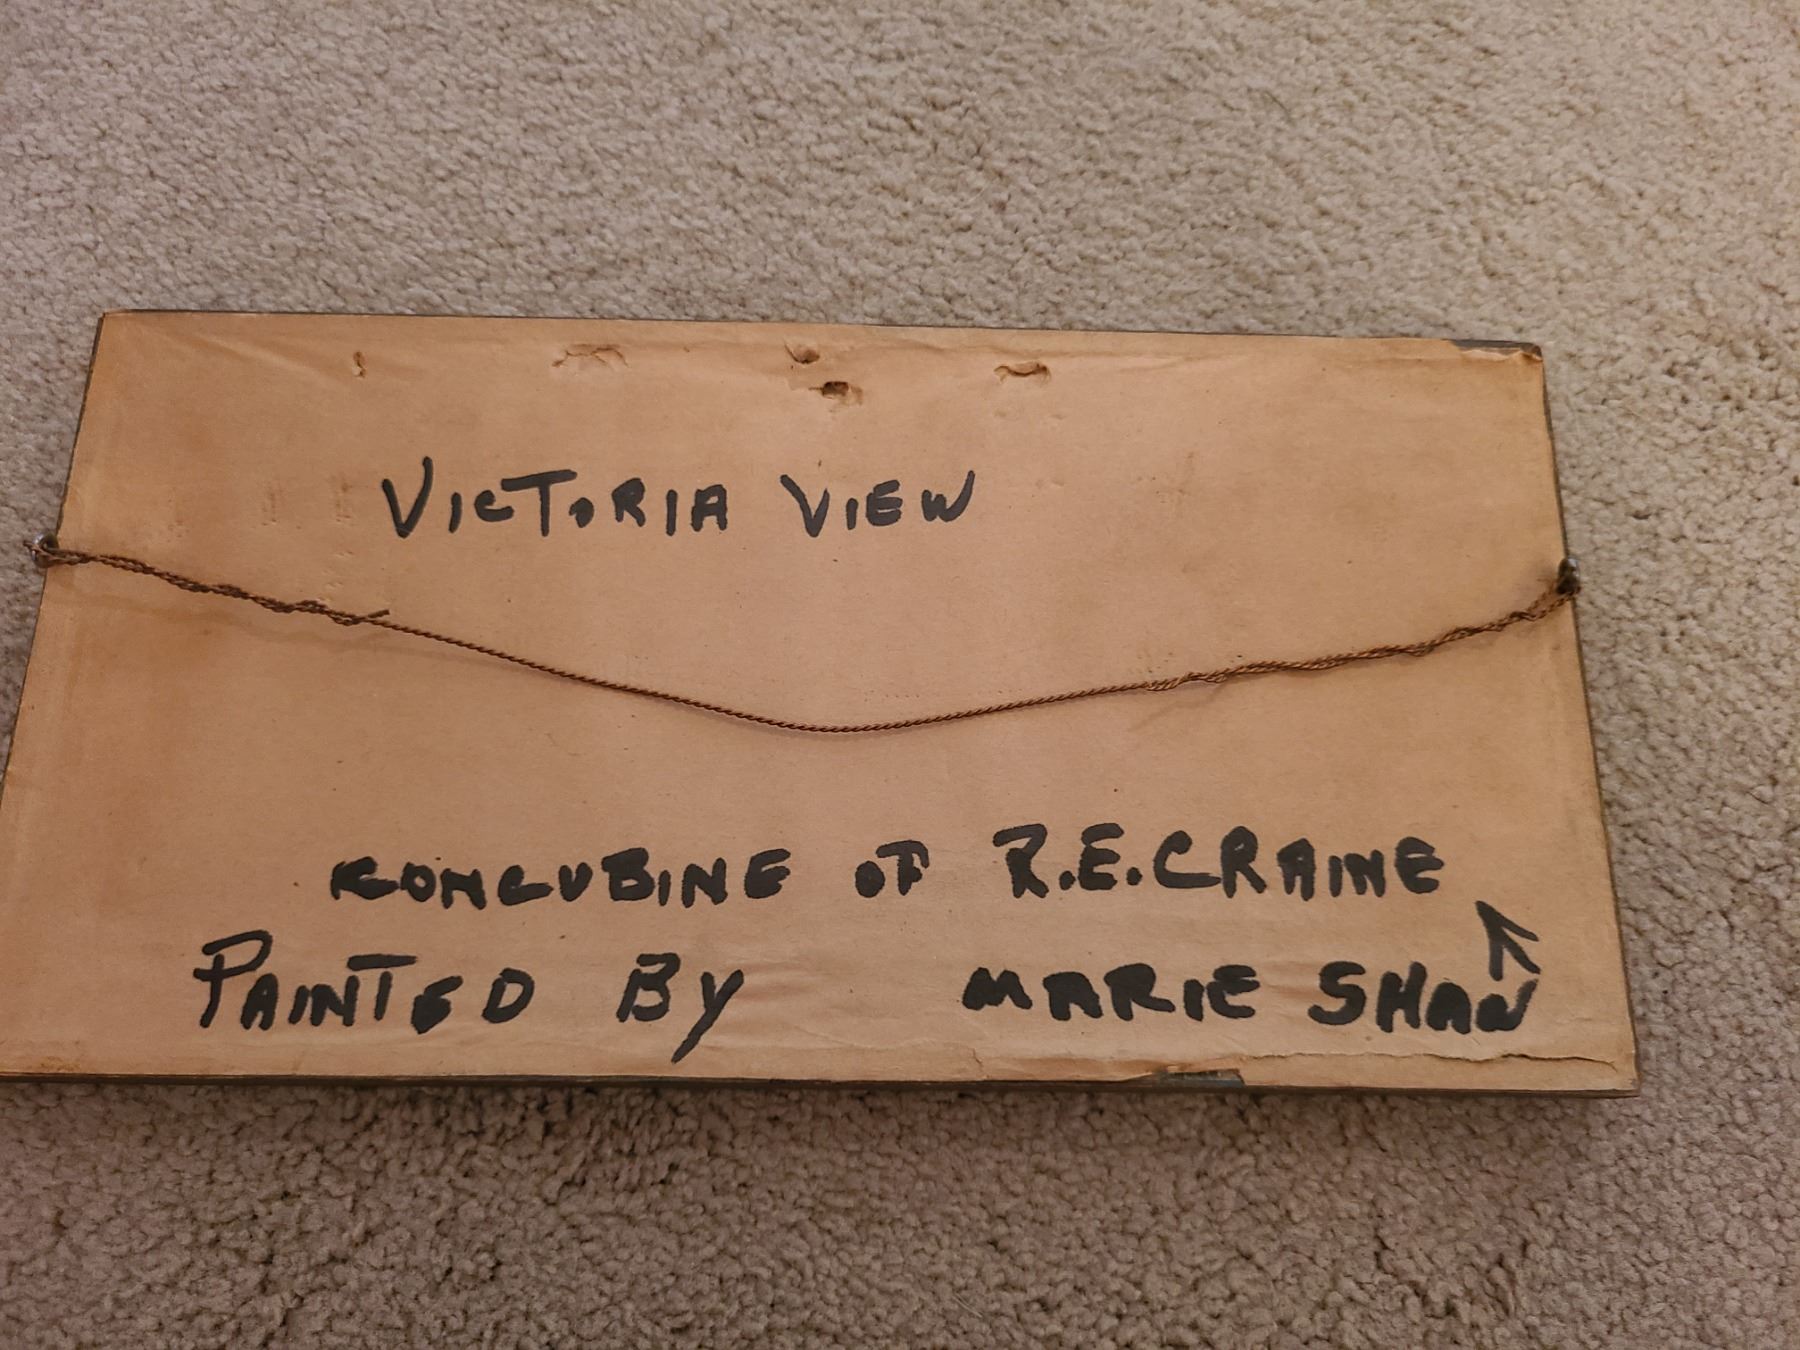 VICTORIA VIEW
CONCUBINE OF R.E.CRAINE
PAINTED BY MARIE SHAW